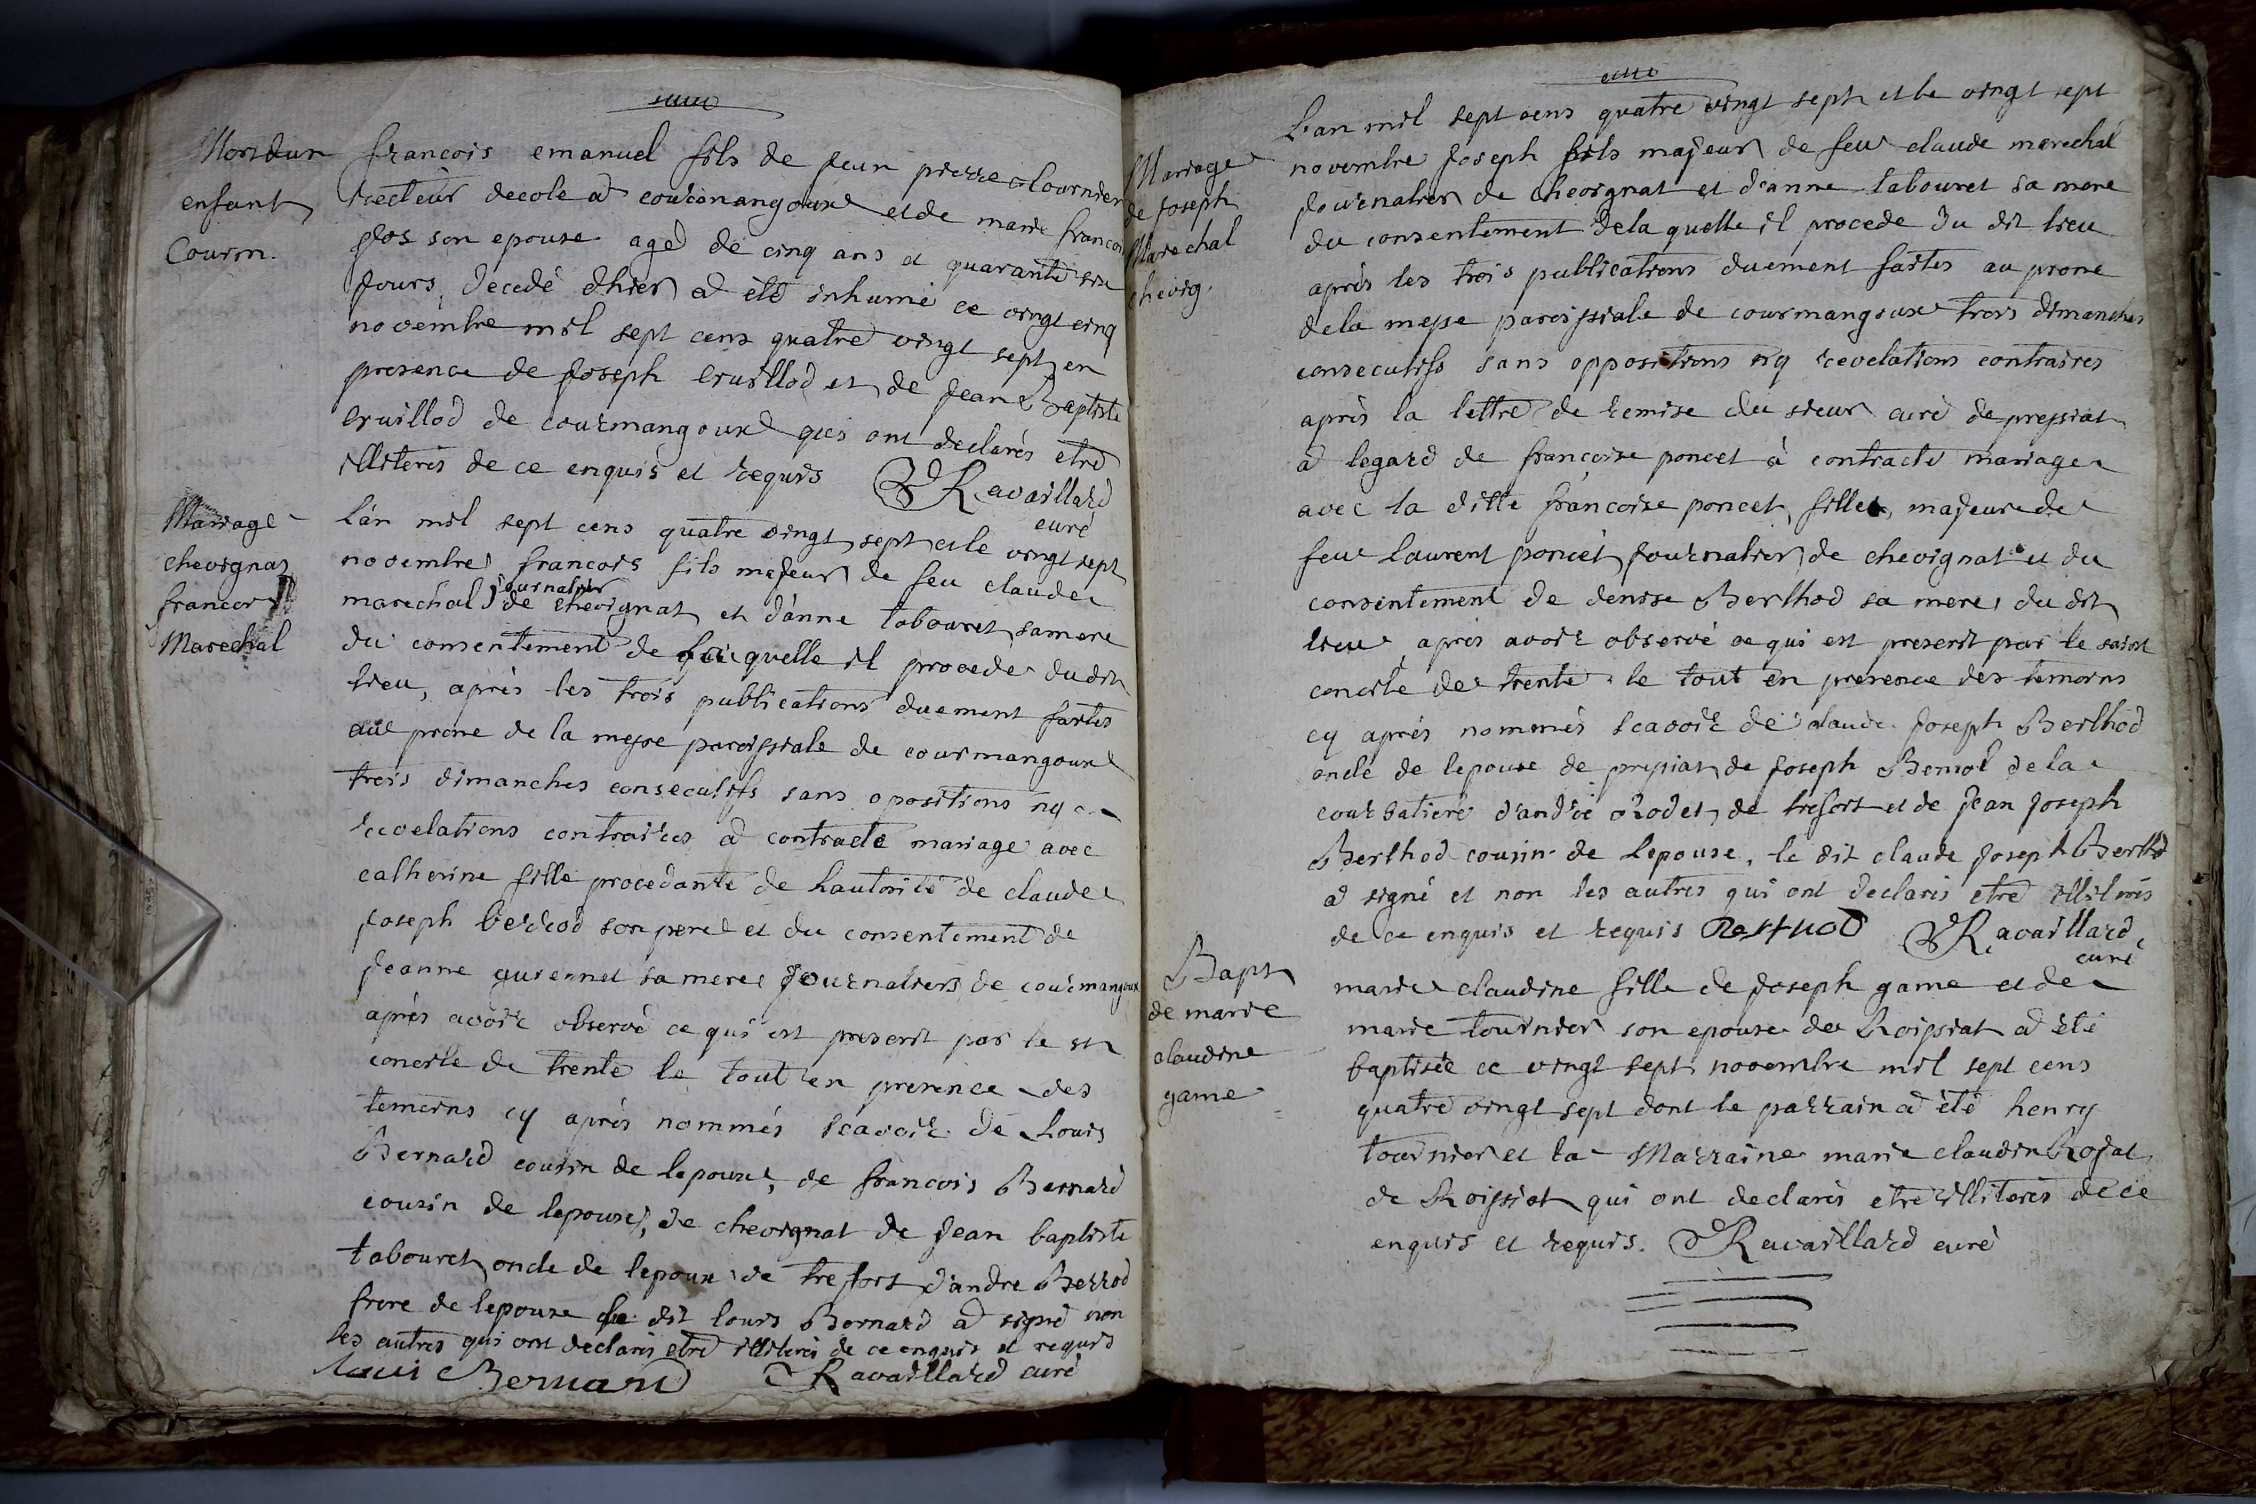 Mort dun
enfant
Courm.
francois emanuel fils de jean pierre tournier
recteur decole a courmangoux et de marie francoise
jos son epouse agé de cinq ans et quarante six
jours, decedé dhier a été inhumé ce vingt cinq
novembre mil sept cens quatre vingt sept en
presence de joseph cruillod et de jean Baptiste
cruillod de courmangoux qui ont declarés etre
illiterés de ce enquis et requis Ravaillard
curé
Mariage
chevignat
francois
Marechal
Lan mil sept cens quatre vingt sept et le vingt sept
novembre francois fils majeur de feu claude
marechal journalier de chevignat et d'anne tabouret sa mere
du consentement de laquelle il procede du dit
lieu, après les trois publications duement faites
au prone de la messe paroissiale de courmangoux
trois dimanches consecutifs sans opositions ny
revelations contraires a contracté mariage avec
catherine fille procedante de lautorité de claude
joseph berrod son pere et du consentement de
jeanne guiennet sa mere journaliers de courmangoux
après avoir observé ce qui est prescrit par le st
concile de trente le tout en presence des
temoins cy après nommés scavoir de Louis
Bernard cousin de lepoux, de francois Bernard
cousin de lepoux, de chevignat de jean baptiste
tabouret oncle de lepoux de trefort d'andre Berrod
frere de lepouse le dit louis Bernard a signé non
les autres qui ont declarés etre illiterés de ce enquis et requis
Loui Bernard Ravaillard curé
Mariage
de joseph
Marechal
chevig.
Lan mil sept cens quatre vingt sept et le vingt sept
novembre joseph fils majeur de feu claude marechal
journalier de chevignat et d'anne tabouret sa mere
du consentement de la quelle il procede du dit lieu
après les trois publications duement faites au prone
de la messe paroissiale de courmangoux trois dimanches
consecutifs sans oppositions ny revelations contraires
après la lettre de remise du sieur curé de pressiat
a legard de francoise poncet à contracté mariage
avec la ditte francoise poncet, fille, majeure de
feu laurent poncet journalier de chevignat et du
consentement de denise Berthod sa mere du dit
lieu, après avoir observé ce qui est prescrit par le saint
concile de trente le tout en presence des temoins
cy après nommés scavoir de claude joseph Berthod
oncle de lepouse de pressiat, de joseph Beniol de la
courbatiere d'andré oRodet de trefort et de jean joseph
Berthod cousin de lepouse, le dit claude joseph Berthod
a signé et non les autres qui ont declarés etre illiterés
de ce enquis et requis Berthod Ravaillard
curé
Bapt
de marie
claudine
game
marie claudine fille de joseph game et de
marie tournier son epouse de Roissiat a été
baptisée ce vingt sept novembre mil sept cens
quatre vingt sept dont le parrain a été henry
tournier et la Marraine marie claudin Rojat
de Roissiat qui ont declarés etre illiterés de ce
enquis et requis. Ravaillard curé